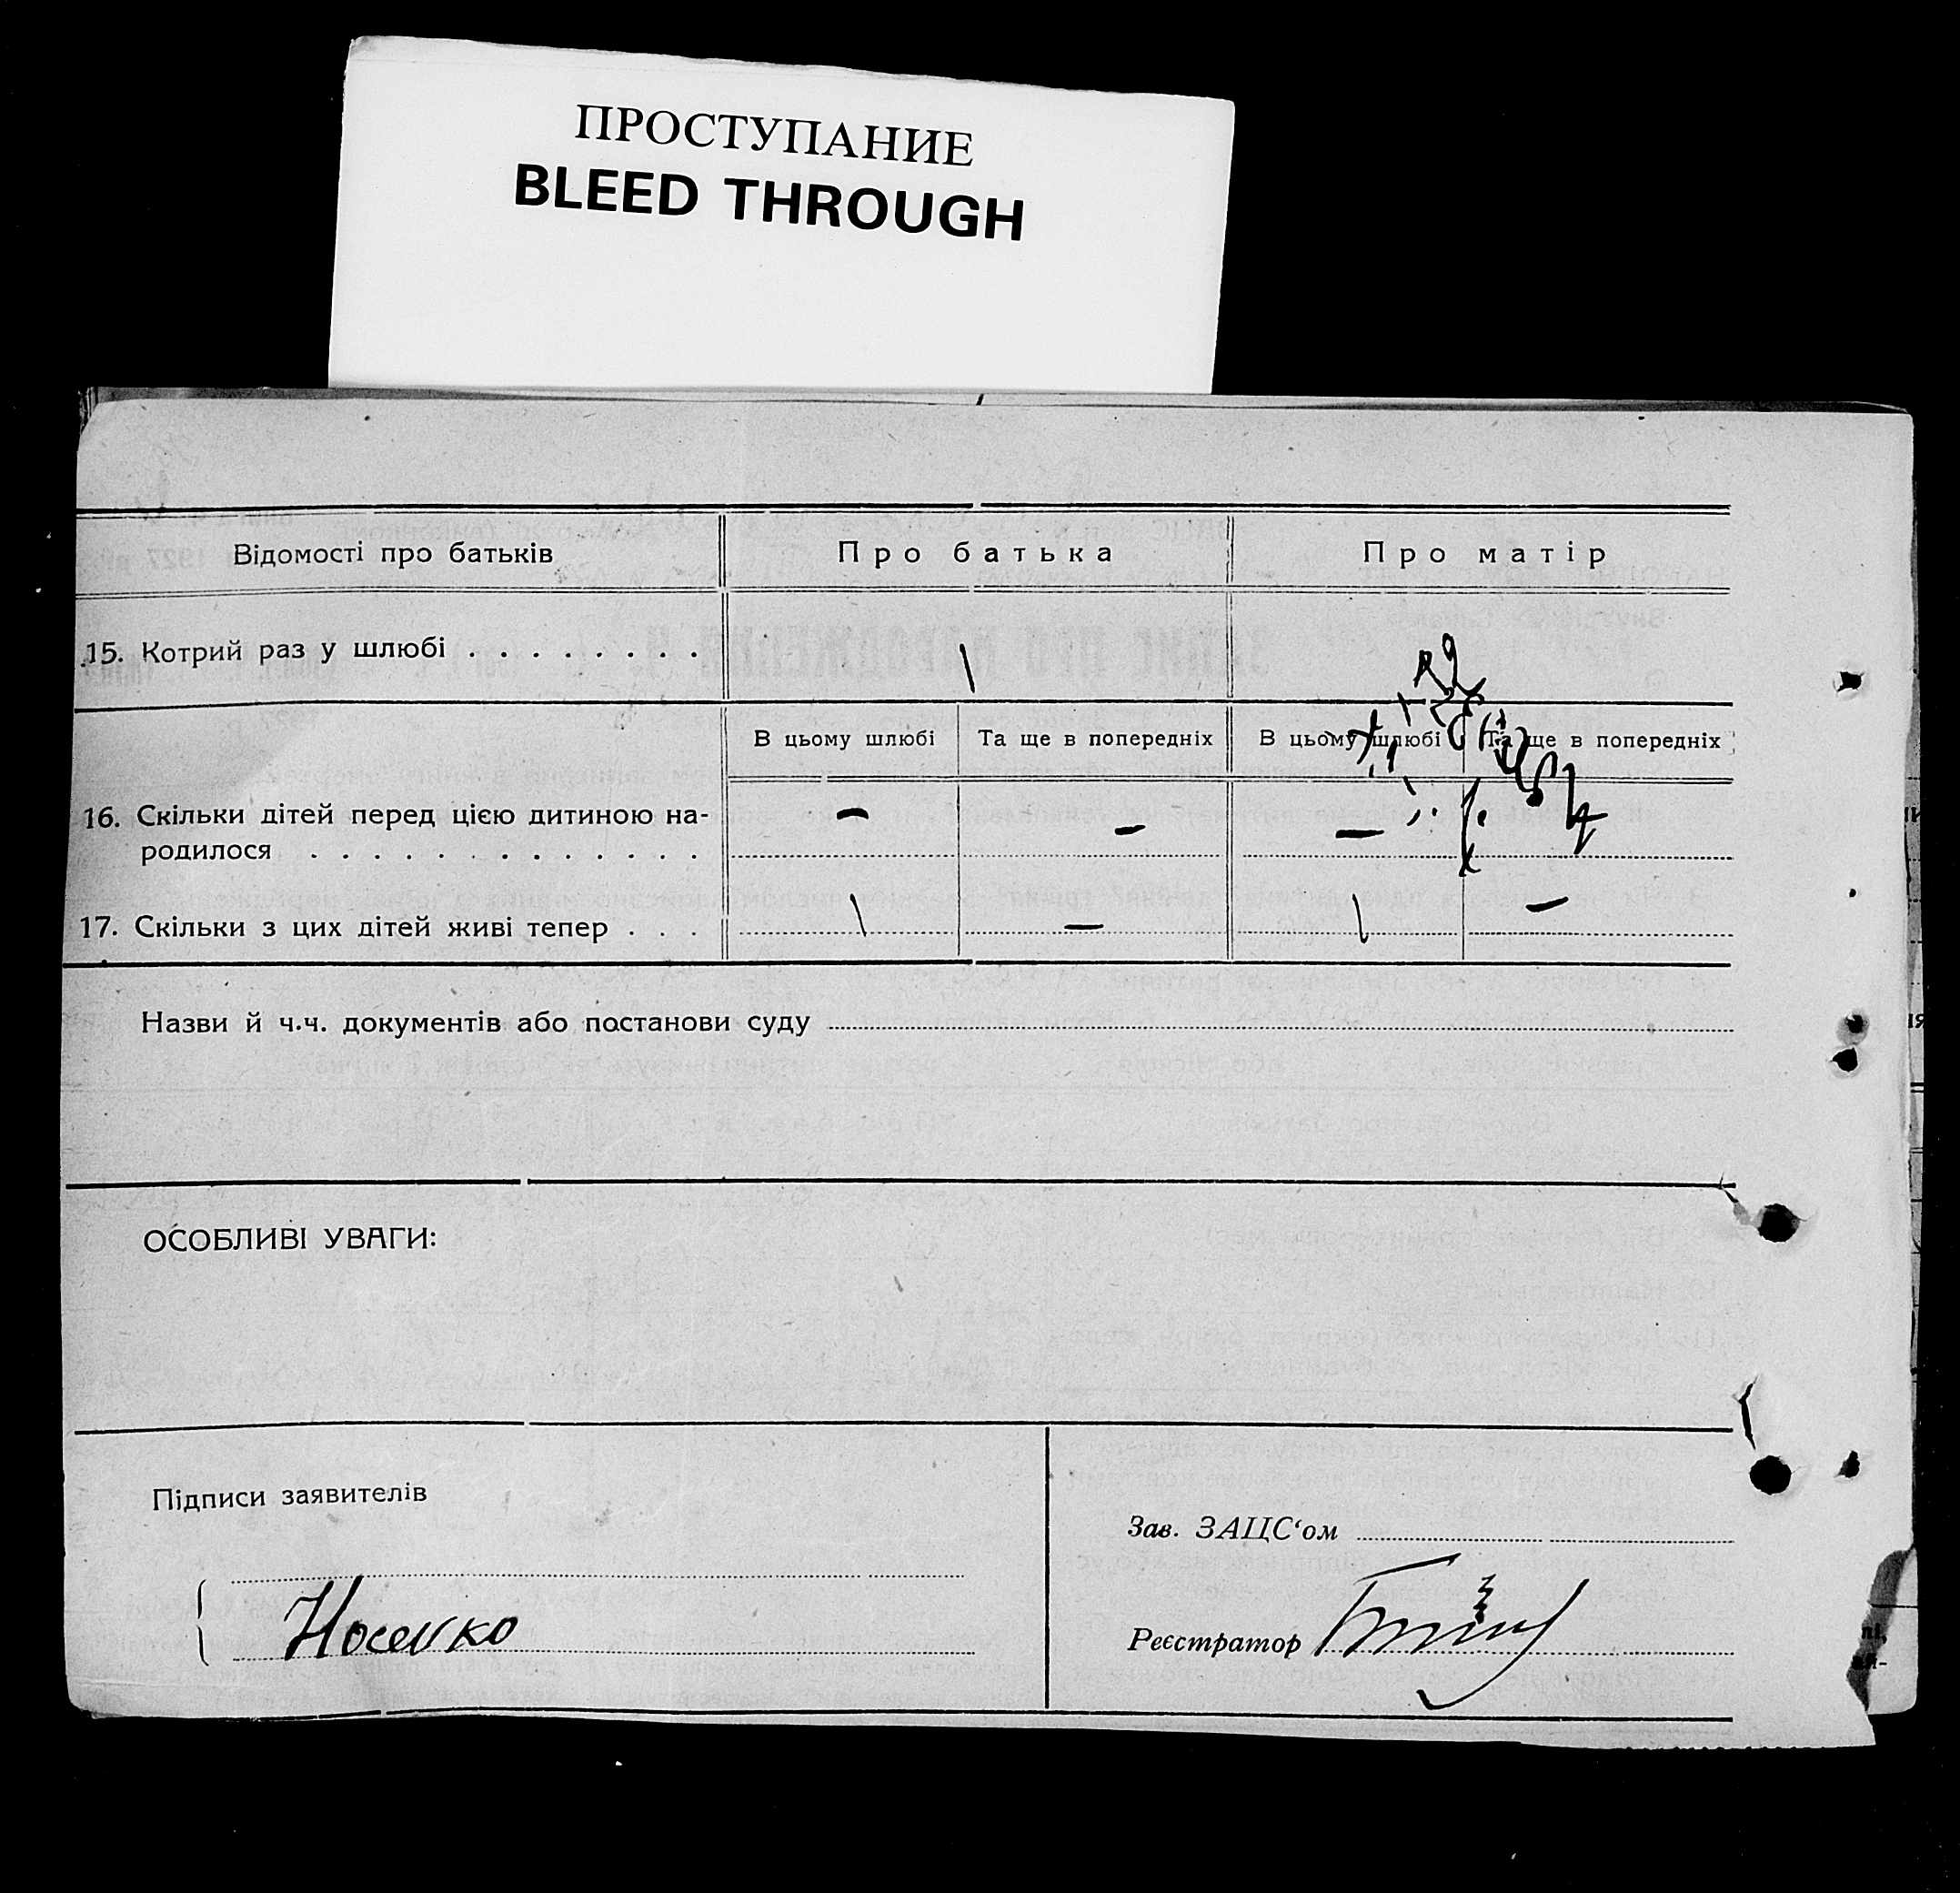 ПРОСТУПАНИЕ
BLEED THROUGH
Відомості про батьків Про батька Про матір
15. Котрий раз у шлюбі . . . . . . . . \
В цьому шлюбі Та ще в попередніх В цьому шлюбі Та ще в попередніх
16. Скільки дітей перед цією дитиною на- – – –
родилося . . . . . . . . . . . . .
17. Скільки з цих дітей живі тепер . . . \ – \ –
Назви й ч.ч. документів або постанови суду
ОСОБЛИВІ УВАГИ:
Підписи заявителів
Зав. ЗАЦС‘ом
Носенко
Реєстратор